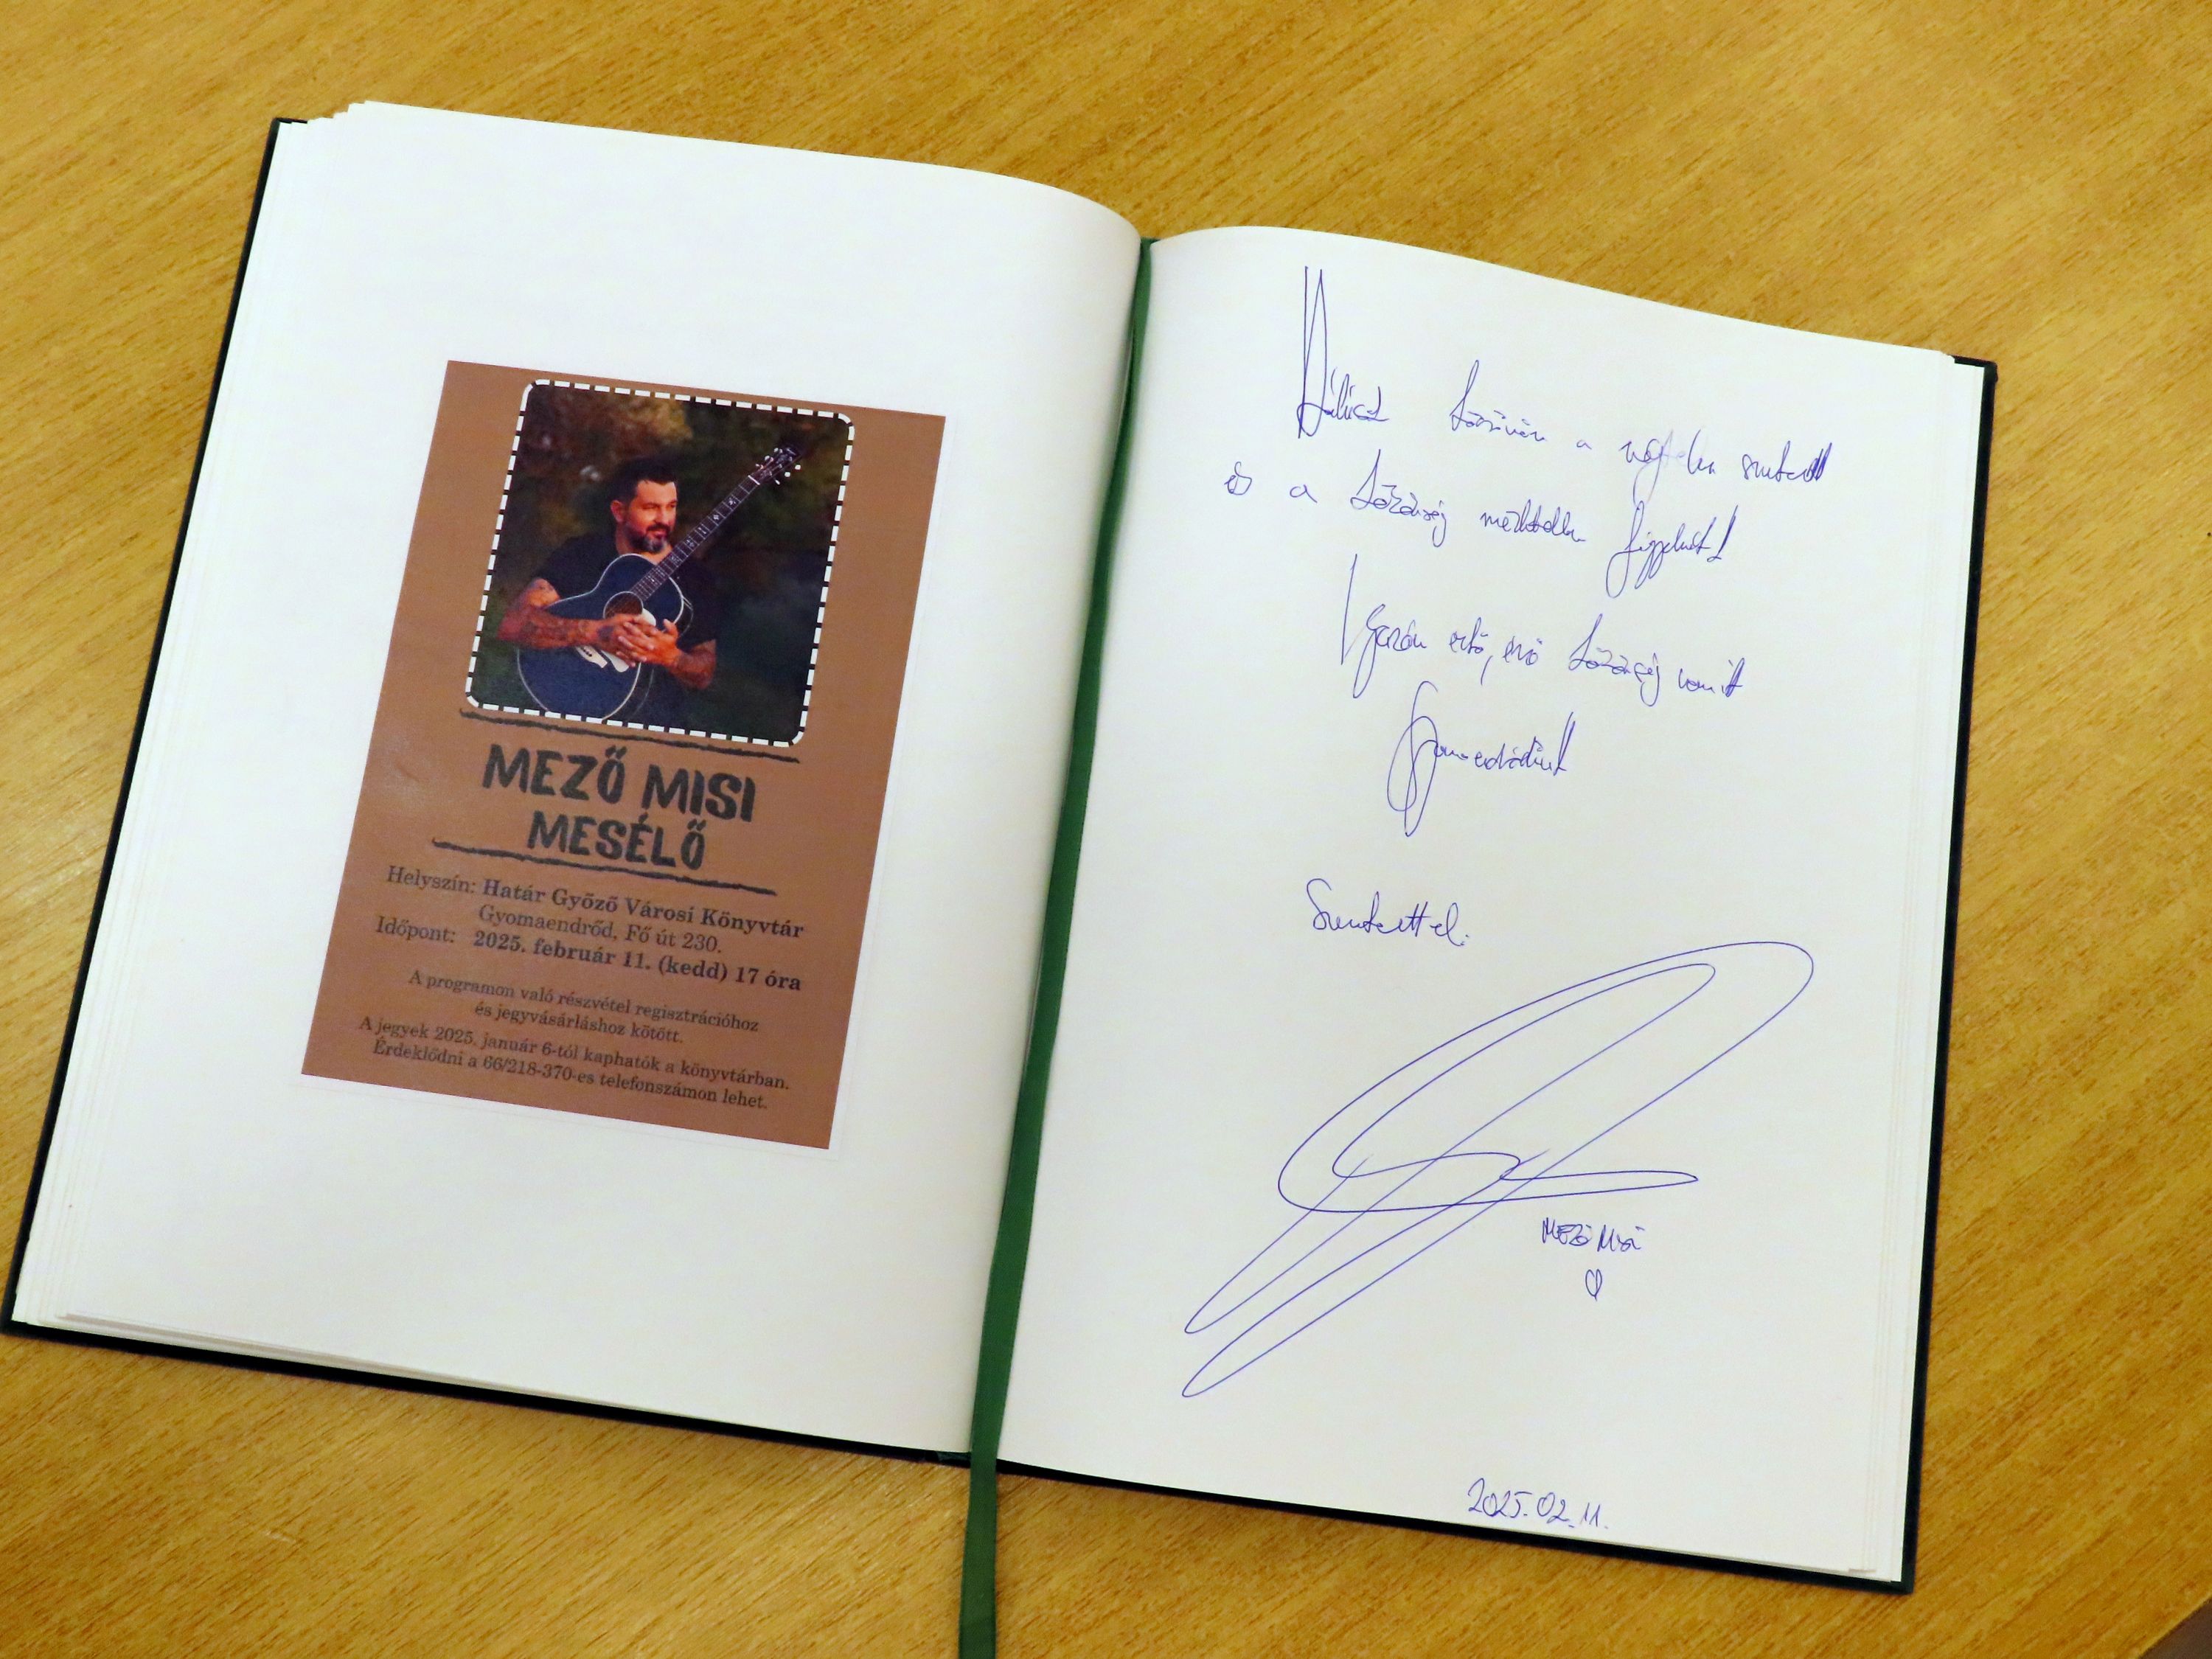 MEZŐ MISI
MESÉLŐ
Helyszín: Határ Győző Városi Könyvtár
Gyomaendrőd, Fő út 230.
Időpont: 2025. február 11. (kedd) 17 óra
A programon való részvétel regisztrációhoz
és jegyvásárláshoz kötött.
A jegyek 2025. január 6-tól kaphatók a könyvtárban.
Érdeklődni a 66/218-370-es telefonszámon lehet.
köszönöm a szeretetet
és a közönség figyelmét!
Igazán értő, érző közönség
Gyomaendrődünk
Szeretettel:
MEZŐ MISI
2025.02.11.